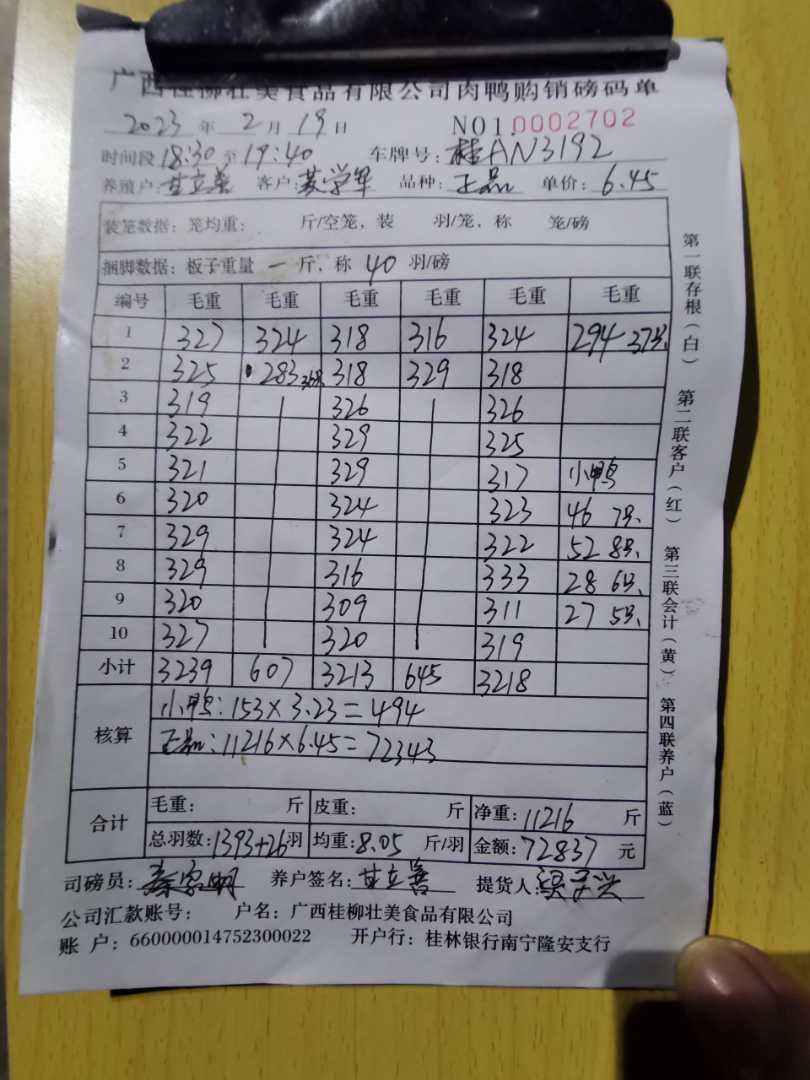 广西桂柳壮美食品有限公司肉鸭购销磅码单
2023 年 2 月 19 日 NO1.0002702
时间段 18:30 至 19:40 车牌号: 桂AN3192
养殖户: 甘立善 客户: 苏学军 品种: 正品 单价: 6.45
装笼数据: 笼均重: 斤/空笼, 装 羽/笼, 称 笼/磅
捆脚数据: 板子重量 一 斤, 称 40 羽/磅
编号 毛重 毛重 毛重 毛重 毛重 毛重
1 327 324 318 316 324 294 37只
2 325 283 36只 318 329 318
3 319 326 326
4 322 329 325
5 321 329 317 小鸭
6 320 324 323 46 7只
7 329 324 322 52 8只
8 329 316 333 28 6只
9 320 309 311 27 5只
10 327 320 319
小计 3239 607 3213 645 3218
核算 小鸭: 153×3.23=494
正品: 11216×6.45=72343
合计 毛重: 斤 皮重: 斤 净重: 11216 斤
总羽数: 1393+26 羽 均重: 8.05 斤/羽 金额: 72837 元
司磅员: 养户签名: 甘立善 提货人:
公司汇款账号: 户名: 广西桂柳壮美食品有限公司
账 户: 660000014752300022 开户行: 桂林银行南宁隆安支行
第一联存根(白) 第二联客户(红) 第三联会计(黄) 第四联养户(蓝)